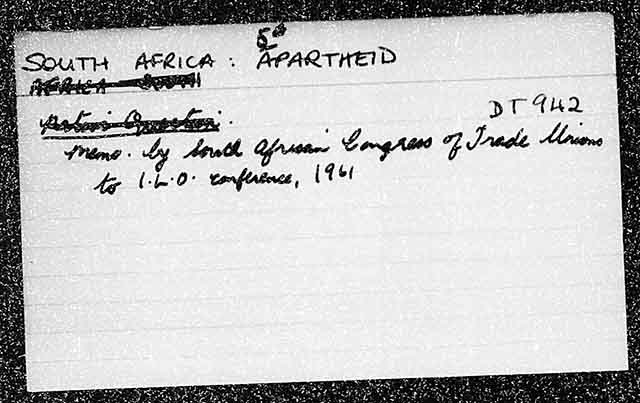 SOUTH AFRICA : APARTHEID
AFRICA SOUTH
DT 942
Memo. by South African Congress of Trade Unions
to I.L.O. conference, 1961